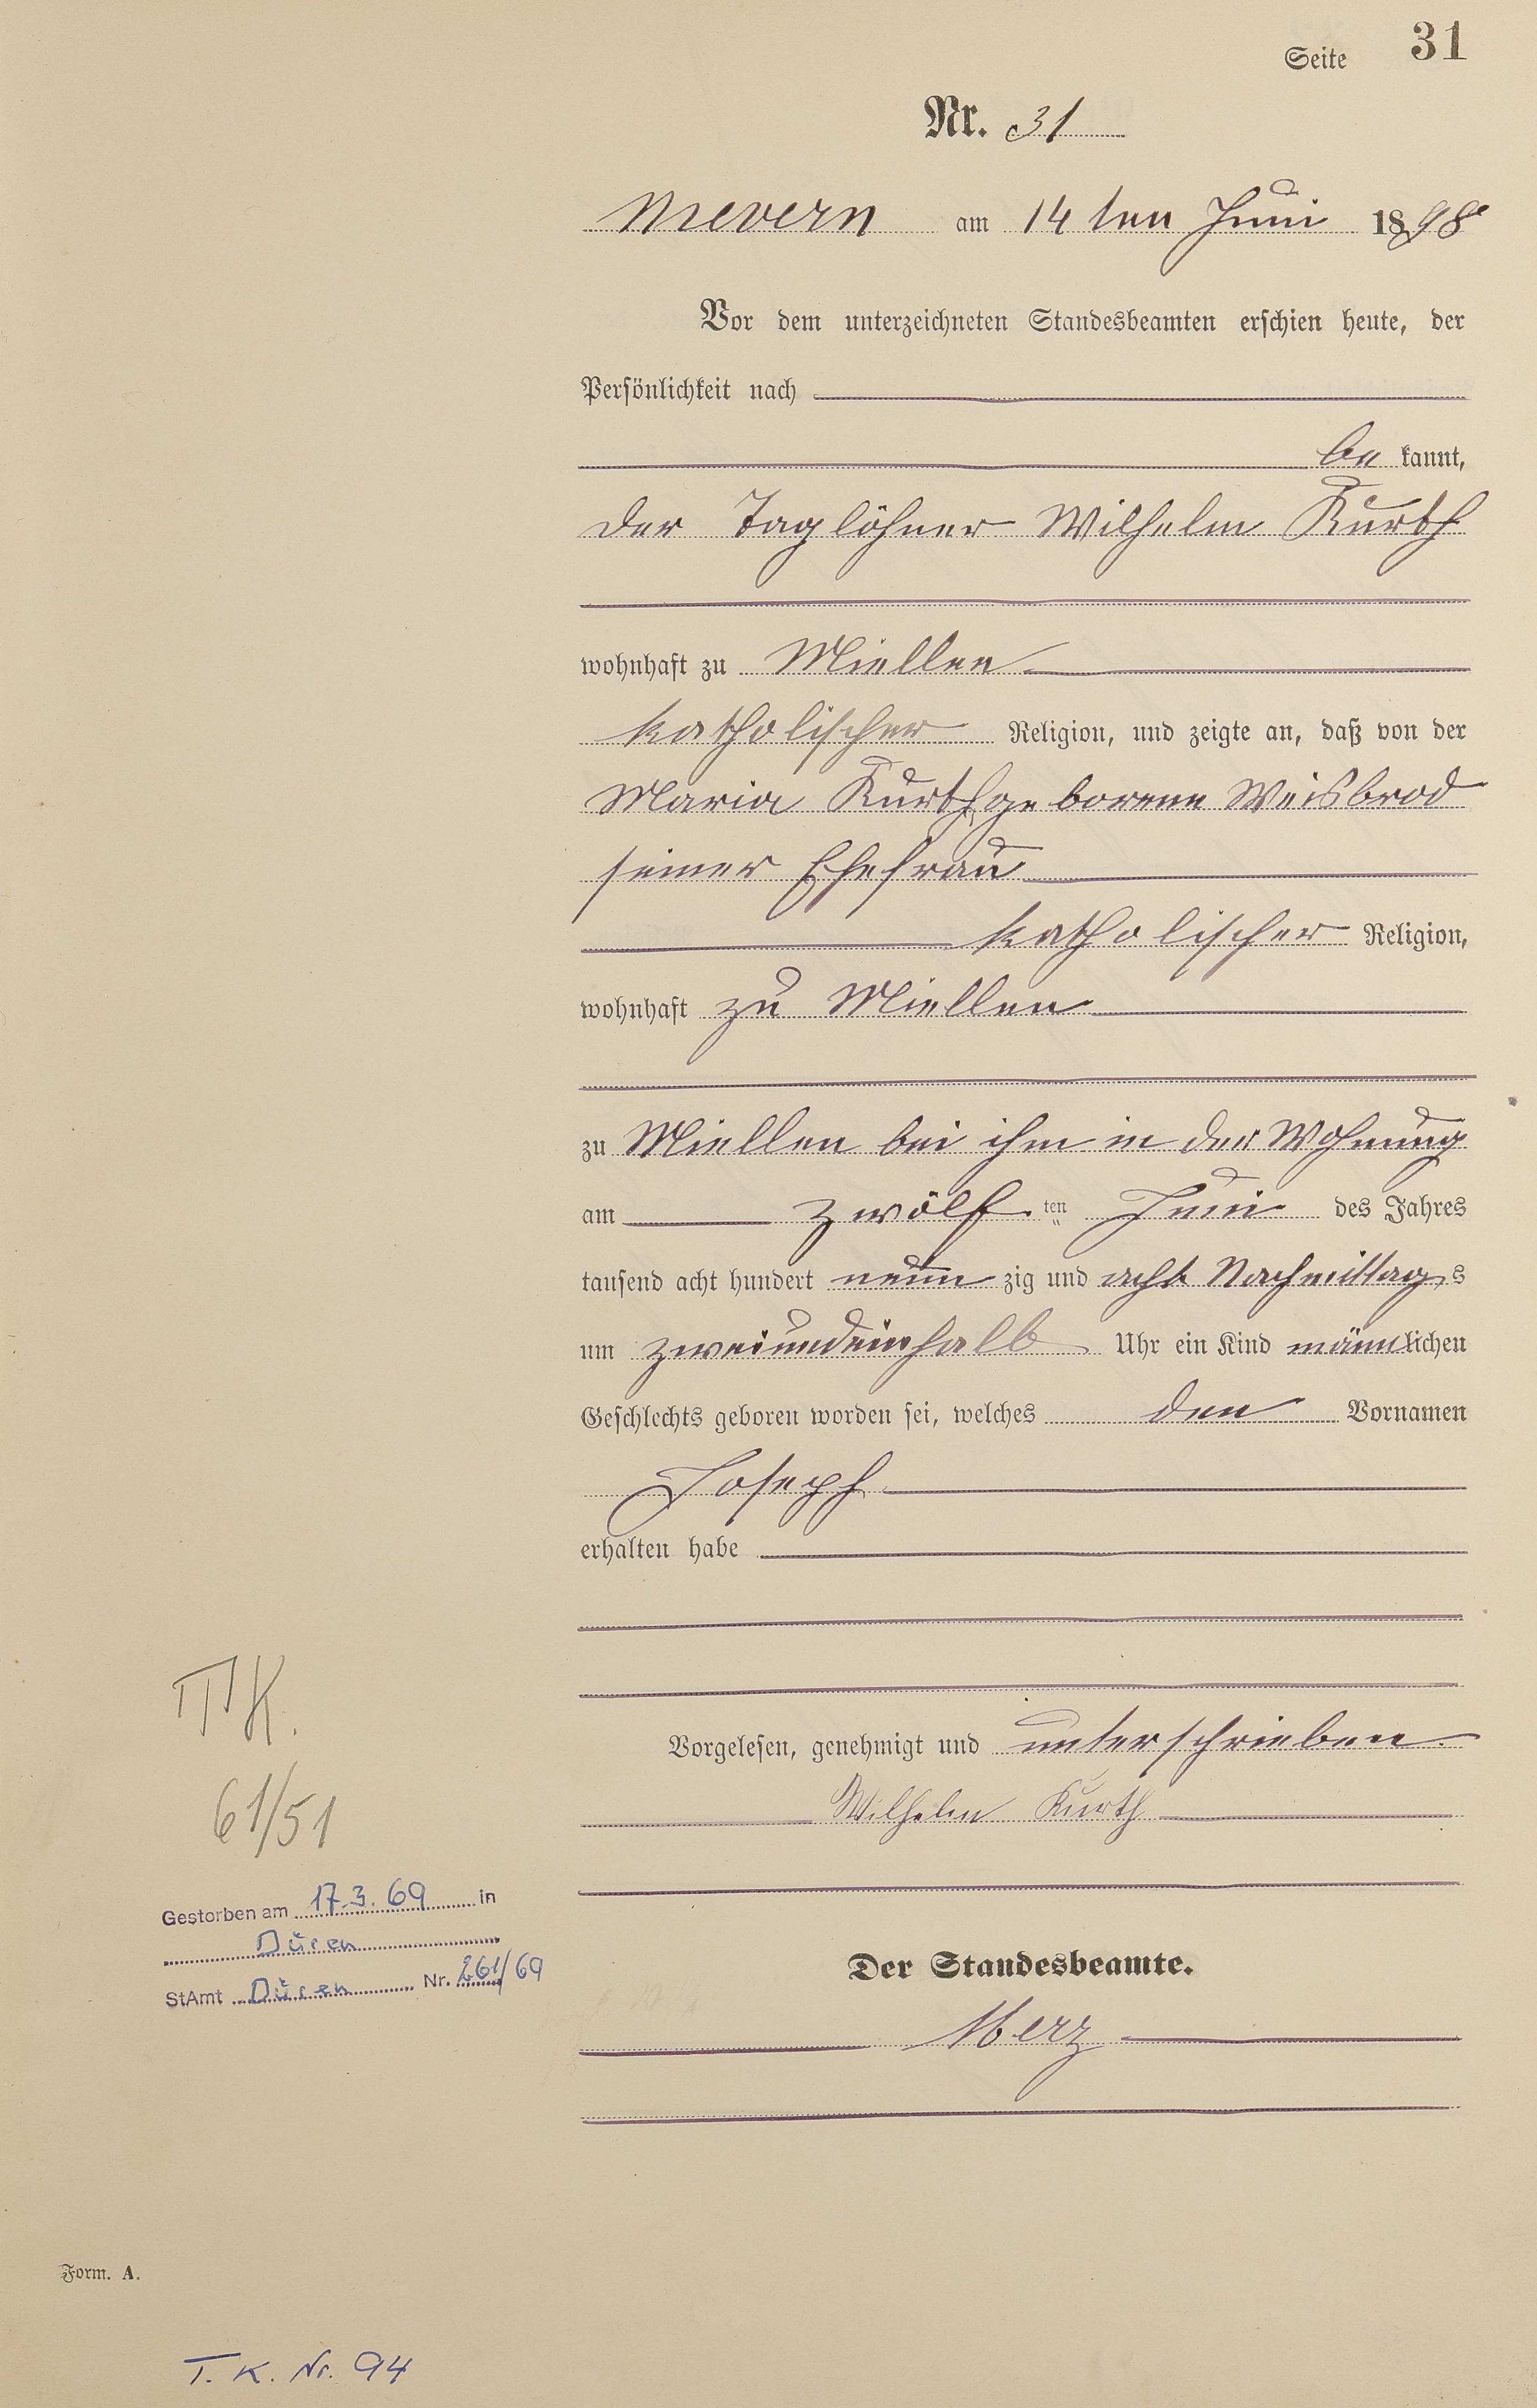 Seite 31
Nr. 31
Nievern am 14ten Juni 1898
Vor dem unterzeichneten Standesbeamten erschien heute, der
Persönlichkeit nach
be kannt,
der Taglöhner Wilhelm Kurth
wohnhaft zu Miellen
katholischer Religion, und zeigte an, daß von der
Maria Kurth geborene Weisbrod
seiner Ehefrau
katholischer Religion,
wohnhaft zu Miellen
zu Miellen bei ihm in der Wohnung
am zwölf ten Juni des Jahres
tausend acht hundert neun zig und acht Nachmittags
um zweiundeinhalb Uhr ein Kind männlichen
Geschlechts geboren worden sei, welches den Vornamen
Joseph
erhalten habe
Vorgelesen, genehmigt und unterschrieben.
Wilhelm Kurth
Der Standesbeamte.
Merz
K.
61/51
Gestorben am 17.3.69 in
Düren
StAmt Düren Nr. 261/69
Form. A.
T. K. Nr. 94